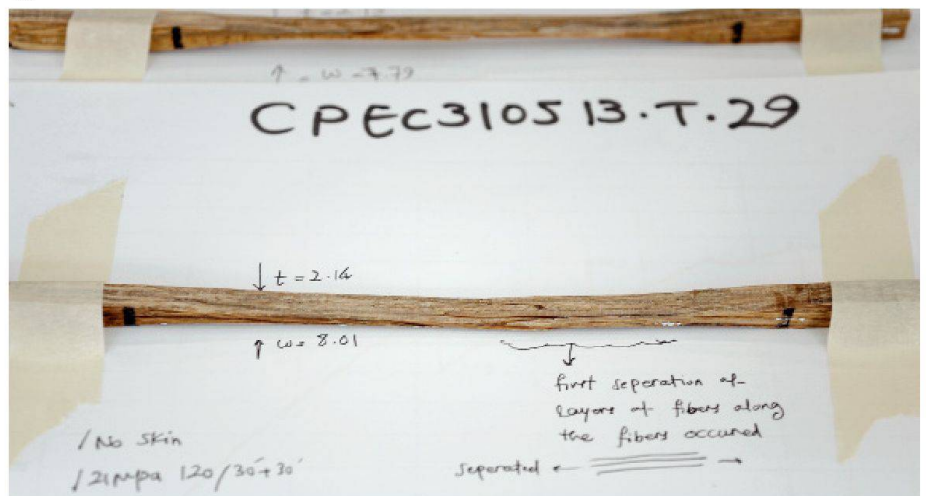 ↑ = w = 7.79
CPEC310513.T.29
↓ t = 2.14
↑ w = 8.01
first seperation of
layers of fibers along
the fibers occured
/ No Skin
/ 21 mpa 120/30'+30'
Seperated ← →